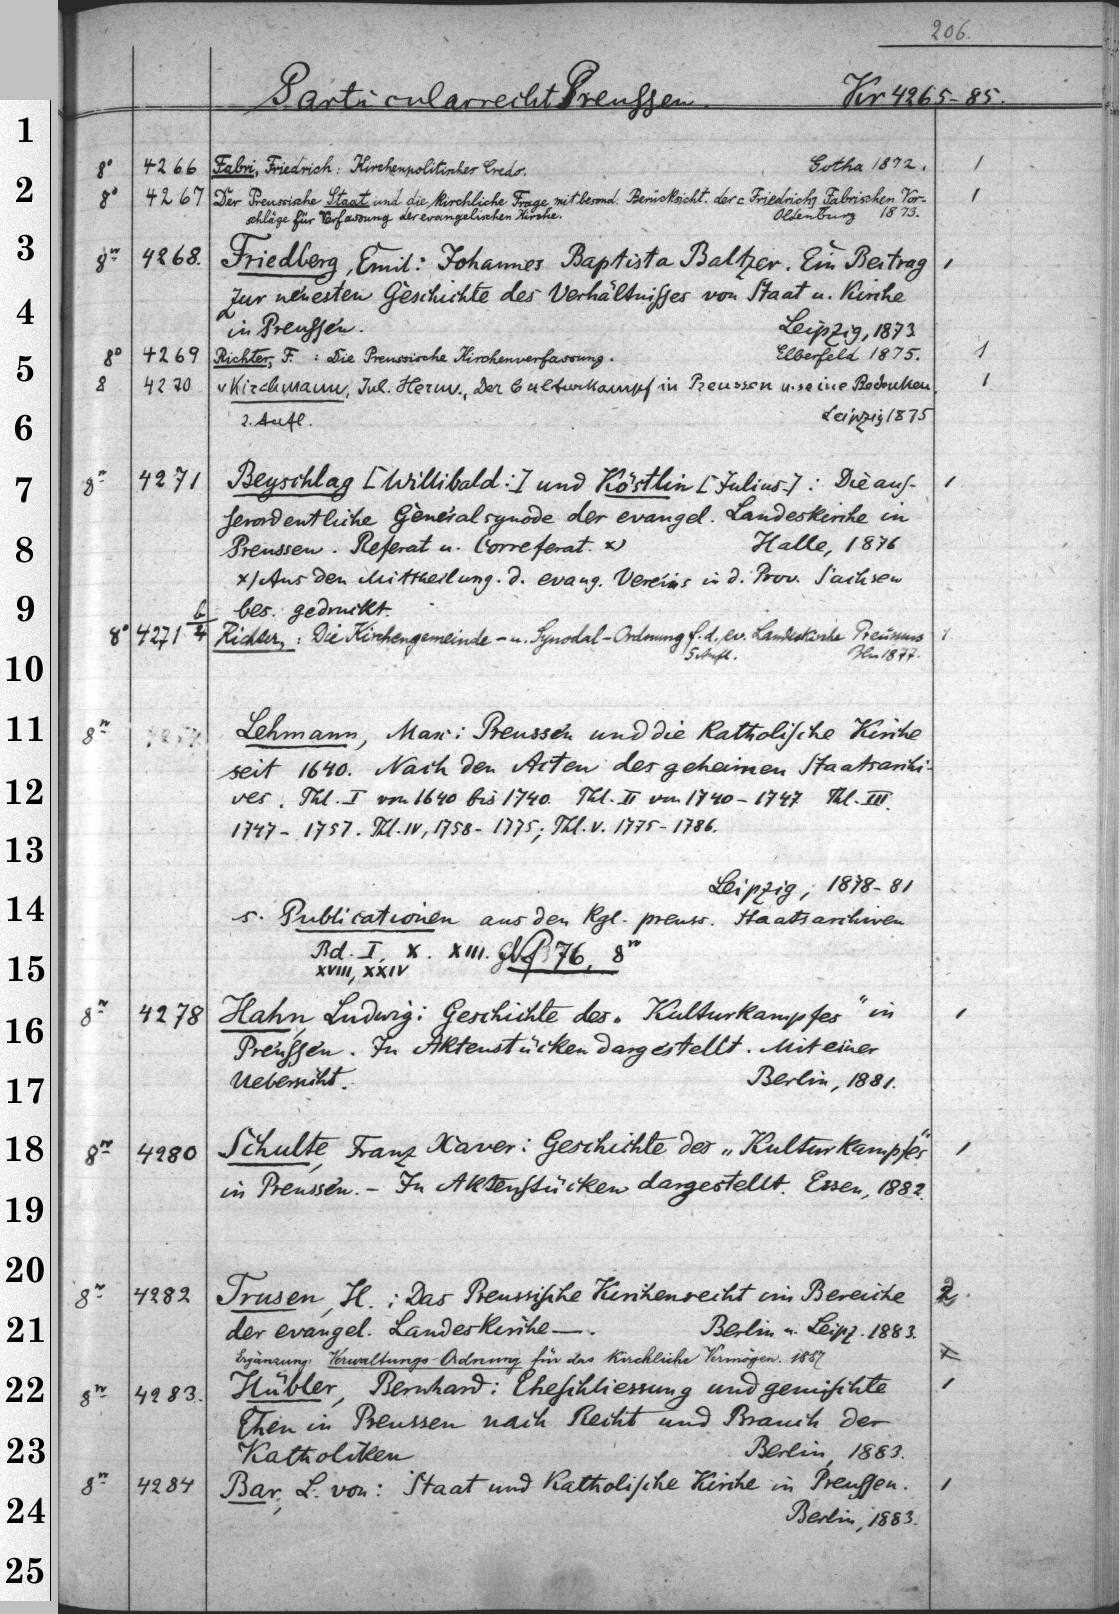 206.
Particularrecht Preussen. Kr 4265-85.
1
8° 4266 Fabri, Friedrich: Kirchenpolitisches Credo. Gotha 1872. 1
2
8° 4267 Der Preussische Staat und die kirchliche Frage mit besond. Berücksicht. der Friedrich Fabrischen Vor- 1
schläge für Verfassung der evangelischen Kirche. Oldenburg 1873.
3
8n 4268. Friedberg, Emil: Johannes Baptista Baltzer. Ein Beitrag 1
zur neuesten Geschichte des Verhältnisses von Staat u. Kirche
4
in Preussen. Leipzig, 1873
5
8° 4269 Richter, F. : Die Preussische Kirchenverfassung. Elberfeld 1875. 1
8 4270 v Kirchmann, Jul. Herm., Der Culturkampf in Preussen u. seine Bedenken. 1
6
2. Aufl. Leipzig 1875
7
8n 4271 Beyschlag [Willibald:] und Köstlin [Julius] : Die aus- 1
serordentliche Generalsynode der evangel. Landeskirche in
8
Preussen. Referat u. Correferat. x) Halle, 1876
x) Aus den Mittheilung. d. evang. Vereins in d. Prov. Sachsen
9
bes. gedruckt.
8° 4271 b/4 Richter, : Die Kirchengemeinde- u. Synodal-Ordnung f. d. ev. Landeskirche Preussens 1
5 Aufl. Bln 1877.
10
11
8n Lehmann, Max: Preussen und die katholische Kirche
seit 1640. Nach den Acten des geheimen Staatsarchi-
12
ves. Thl. I von 1640 bis 1740. Thl. II von 1740-1747 Thl. III.
1747-1757. Thl. IV, 1758-1775; Thl. V. 1775-1786.
13
Leipzig, 1878-81
14
s. Publicationen aus den Kgl. preuss. Staatsarchiven
Bd. I, X. XIII. 76, 8n
15
XVIII, XXIV
16
8n 4278 Hahn, Ludwig: Geschichte des „Kulturkampfes" in 1
Preussen. In Aktenstücken dargestellt. Mit einer
17
Uebersicht. Berlin, 1881.
18
8n 4280 Schulte, Franz Xaver: Geschichte des „Kulturkampfes" 1
in Preussen. - In Aktenstücken dargestellt. Essen, 1882.
19
20
8n 4282 Trusen, H. : Das Preussische Kirchenrecht im Bereiche 2.
21
der evangel. Landeskirche—. Berlin u. Leipz. 1883.
Ergänzung: Verwaltungs-Ordnung für das kirchliche Vermögen. 1887
22
8n 4283. Hübler, Bernhard: Eheschliessung und gemischte 1
Ehen in Preussen nach Recht und Brauch der
23
Katholiken Berlin, 1883.
8n 4284 Bar, L. von: Staat und Katholische Kirche in Preussen. 1
24
Berlin, 1883.
25